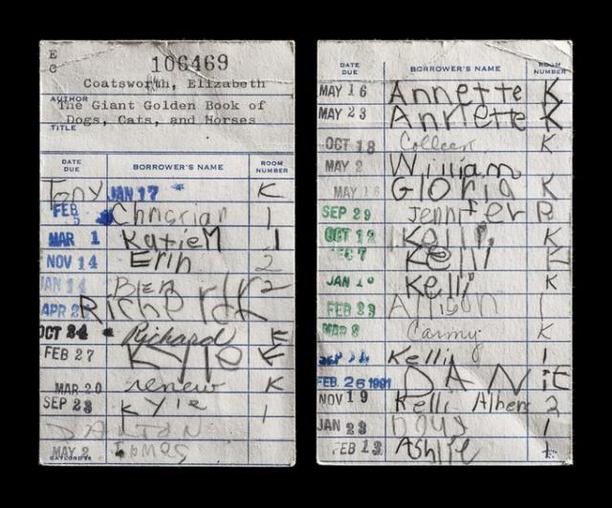 E
C
106469
Coatsworth, Elizabeth
AUTHOR
The Giant Golden Book of
Dogs, Cats, and Horses
TITLE
DATE DUE BORROWER'S NAME ROOM NUMBER
Tony JAN 17 K
FEB 5 Christian 1
MAR 1 Katie M 1
NOV 14 Erin 2
JAN 14 Ben 2
APR Richard
OCT 24 Richard K
FEB 27 Kyle K
MAR 20 renew K
SEP 23 Kyle 1
DALTON
MAY 2 Thomas
GAYLORD
DATE DUE BORROWER'S NAME ROOM NUMBER
MAY 16 Annette K
MAY 23 Annette K
OCT 18 Colleen K
MAY 2 William
MAY 16 Gloria K
SEP 29 Jennifer
OCT 12 Kelli K
DEC 7 Kelli K
JAN Kelli K
FEB 23 Allison 1
MAR 8 Carmy K
SEP Kelli 1
FEB. 26 1991 DANiE
NOV 19 Kelli Albers 2
JAN 23 Doug 1
FEB 13 Ashlie 1